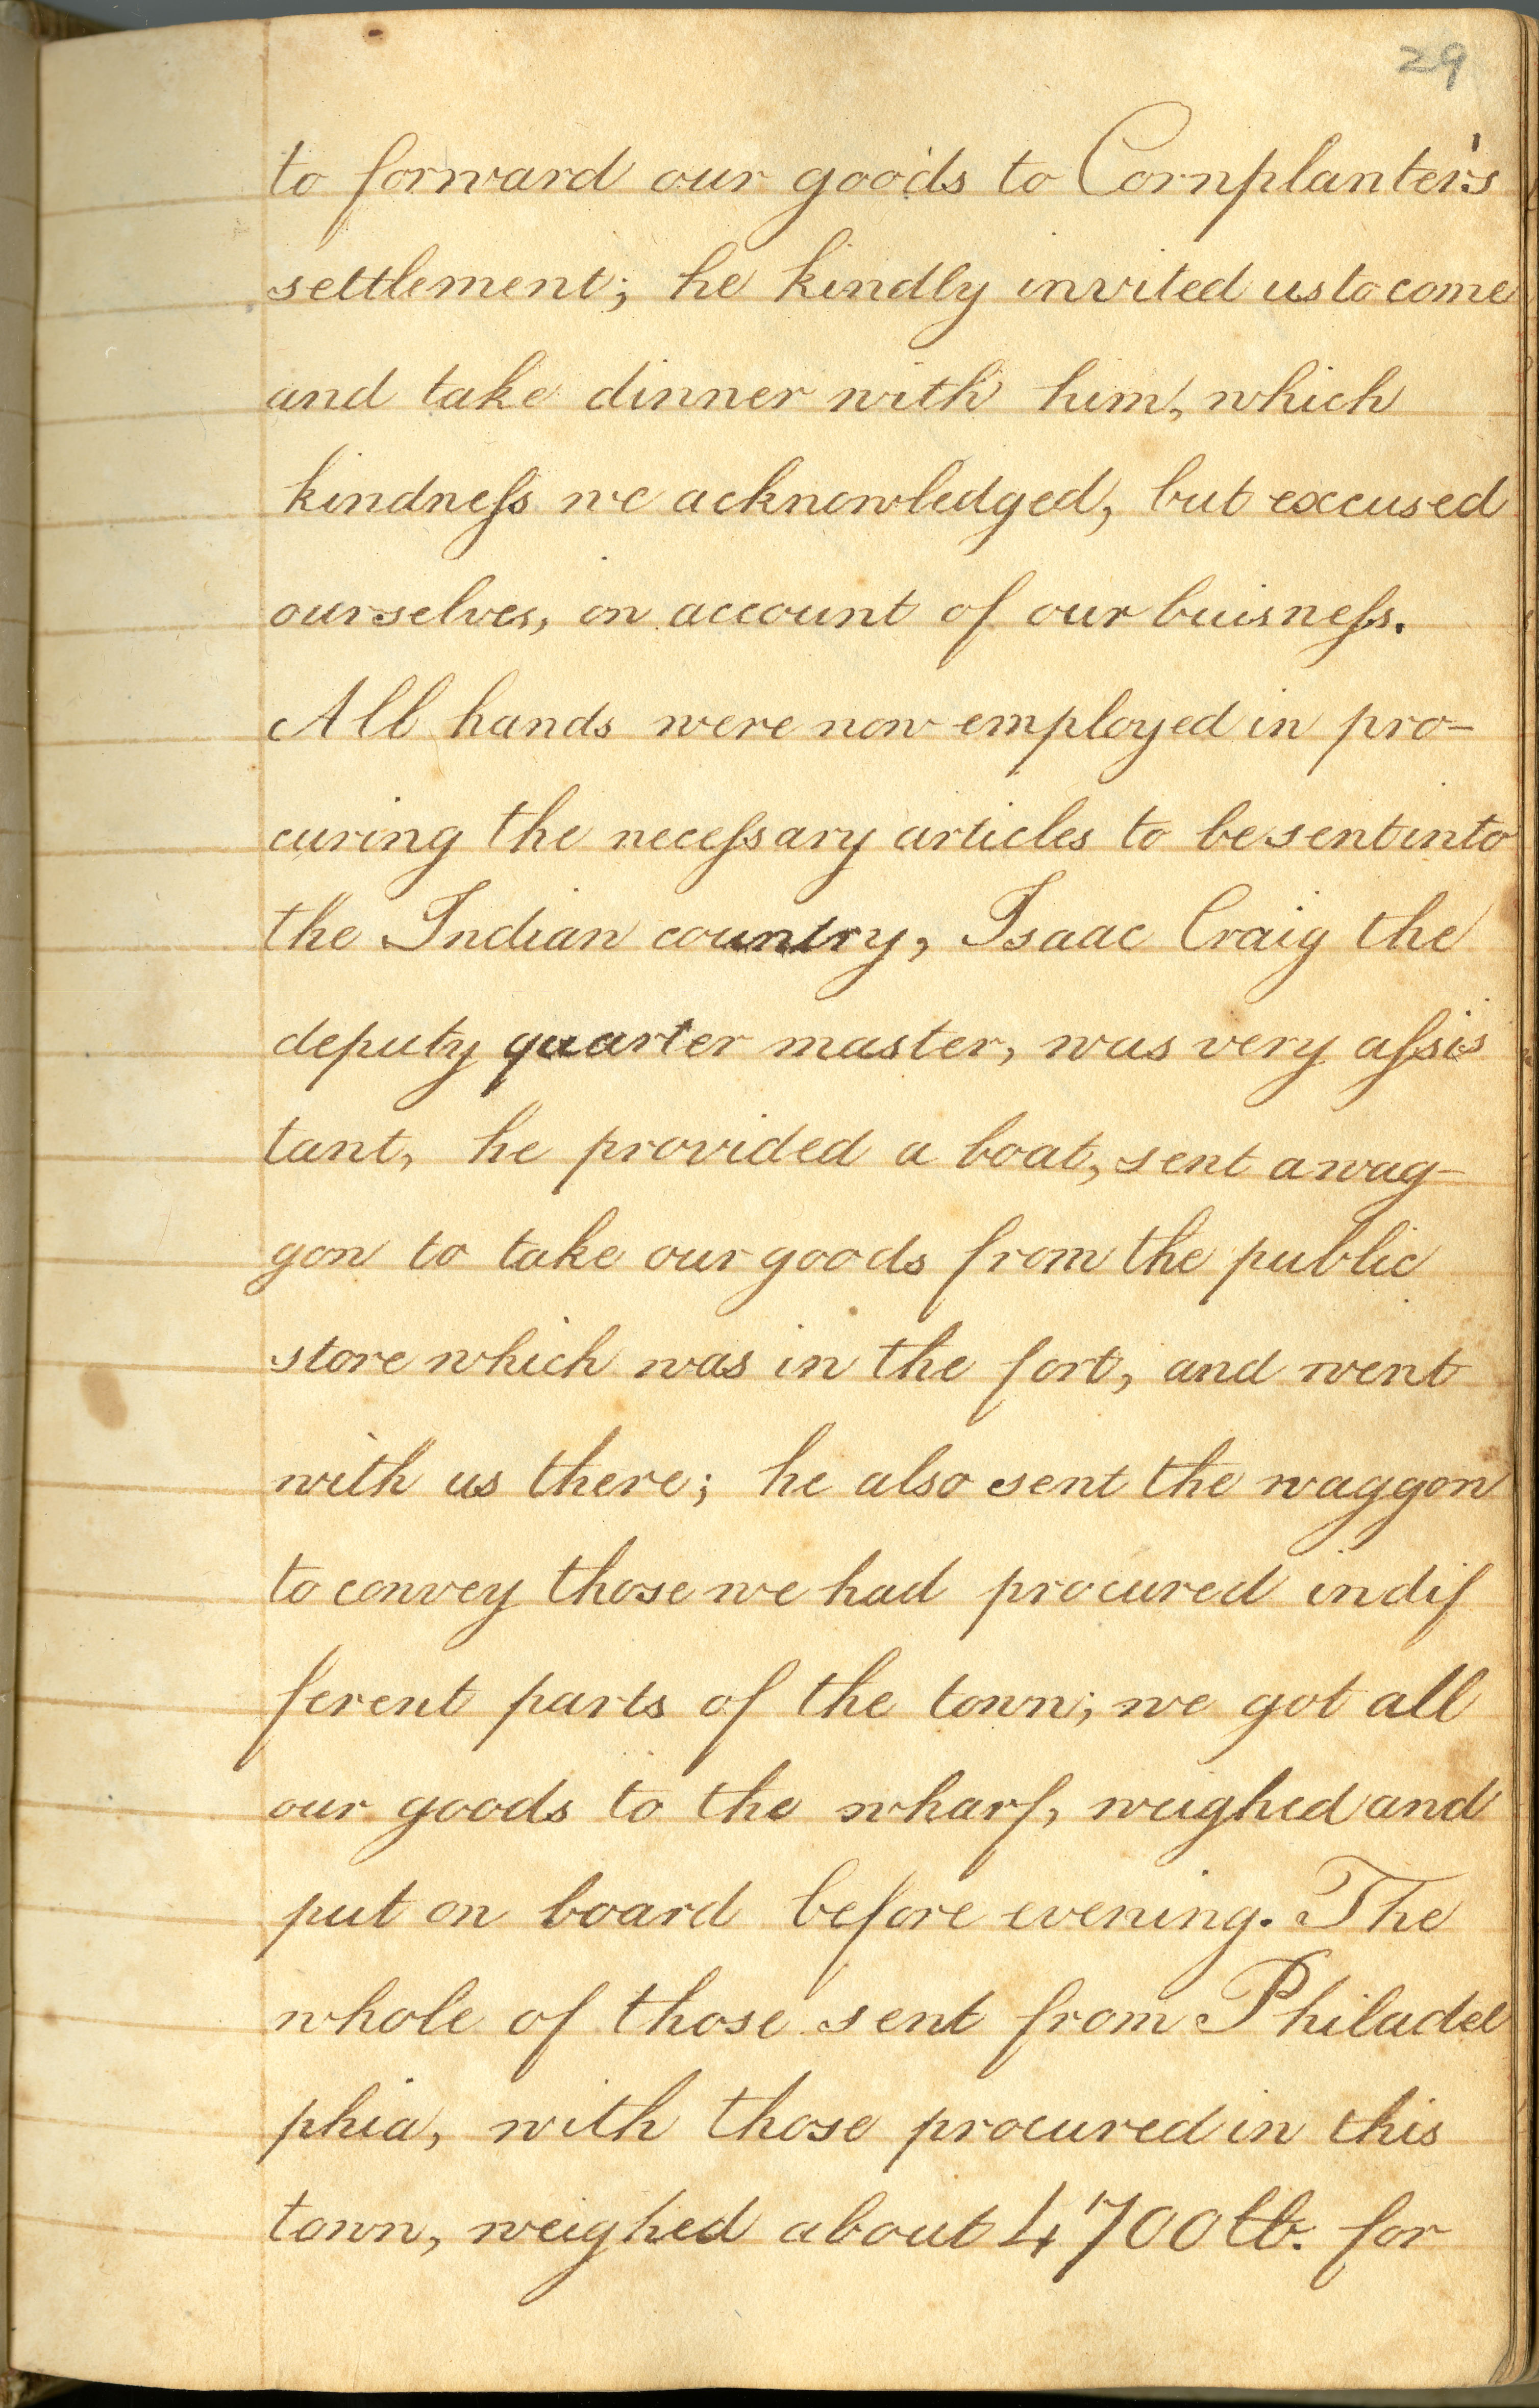 29
to forward our goods to Cornplanter's
settlement; he kindly invited us to come
and take dinner with him, which
kindneſs we acknowledged, but excused
ourselves, on account of our buisneſs.
All hands were now employed in pro-
curing the neceſsary articles to be sent into
the Indian country, Isaac Craig the
deputy quarter master, was very aſsis
tant, he provided a boat, sent a wag-
gon to take our goods from the public
store which was in the fort, and went
with us there; he also sent the waggon
to convey those we had procured in dif
ferent parts of the town; we got all
our goods to the wharf, weighed and
put on board before evening. The
whole of those sent from Philadel
phia, with those procured in this
town, weighed about 4700 lb. for